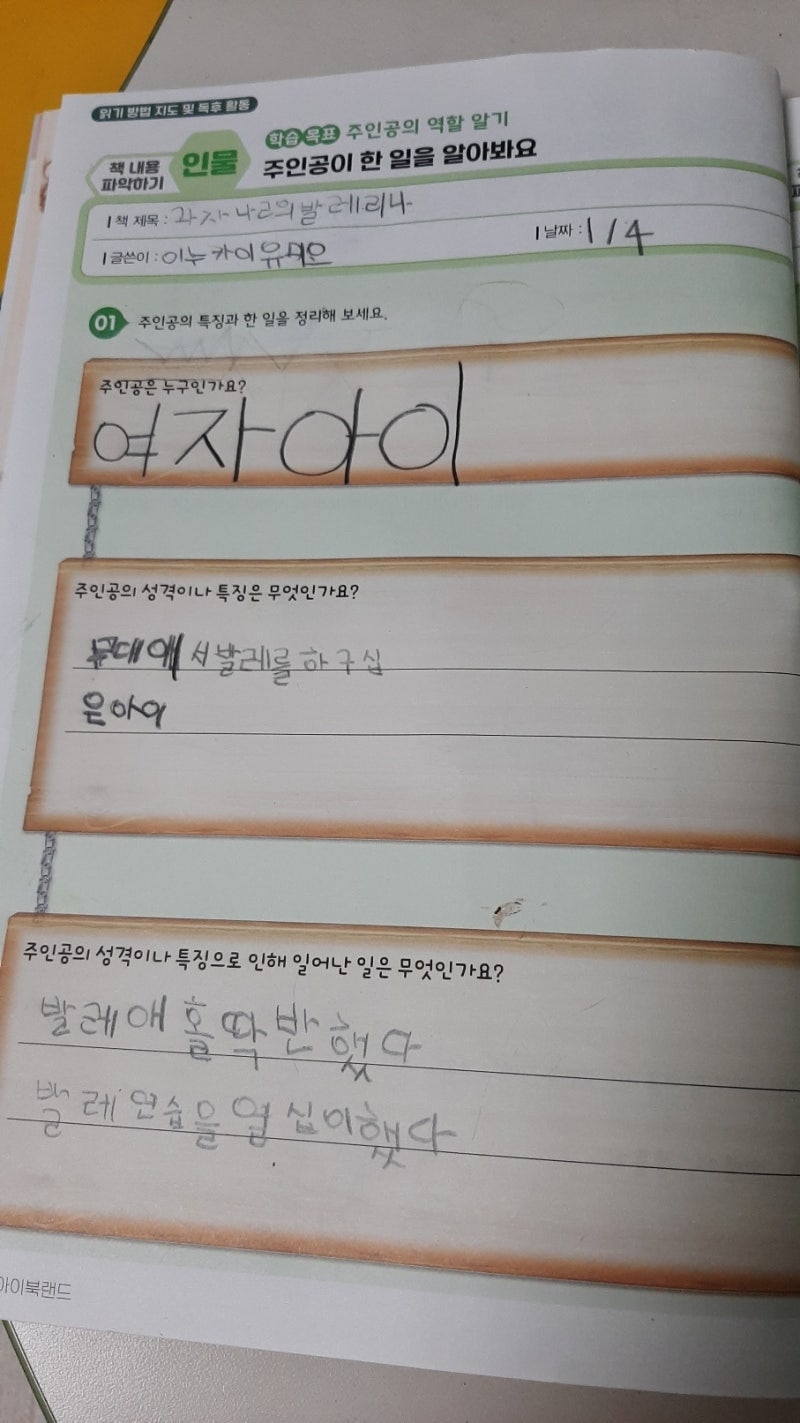 읽기 방법 지도 및 독후 활동
책 내용 파악하기
인물
학습 목표 주인공의 역할 알기
주인공이 한 일을 알아봐요
책 제목 : 과자나라의발레리나
글쓴이 : 이누카이유미오
날짜 : 1/4
01 주인공의 특징과 한 일을 정리해 보세요.
주인공은 누구인가요?
여자아이
주인공의 성격이나 특징은 무엇인가요?
무대에서발레를하구십
은아이
주인공의 성격이나 특징으로 인해 일어난 일은 무엇인가요?
발레애홀딱반했다
발레연습을열십이했다
아이북랜드